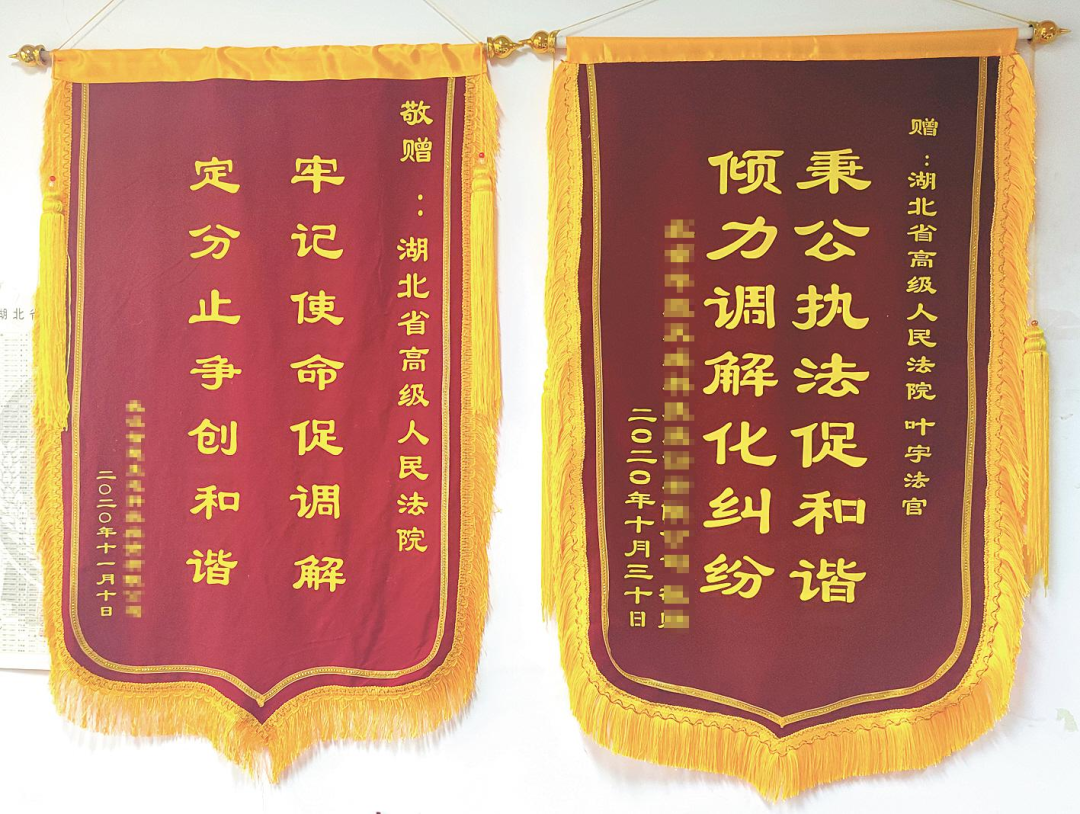 敬赠：湖北省高级人民法院
牢记使命促调解
定分止争创和谐
二〇二〇年十一月十日
赠：湖北省高级人民法院 叶宇法官
秉公执法促和谐
倾力调解化纠纷
二〇二〇年十月三十日
湖北省